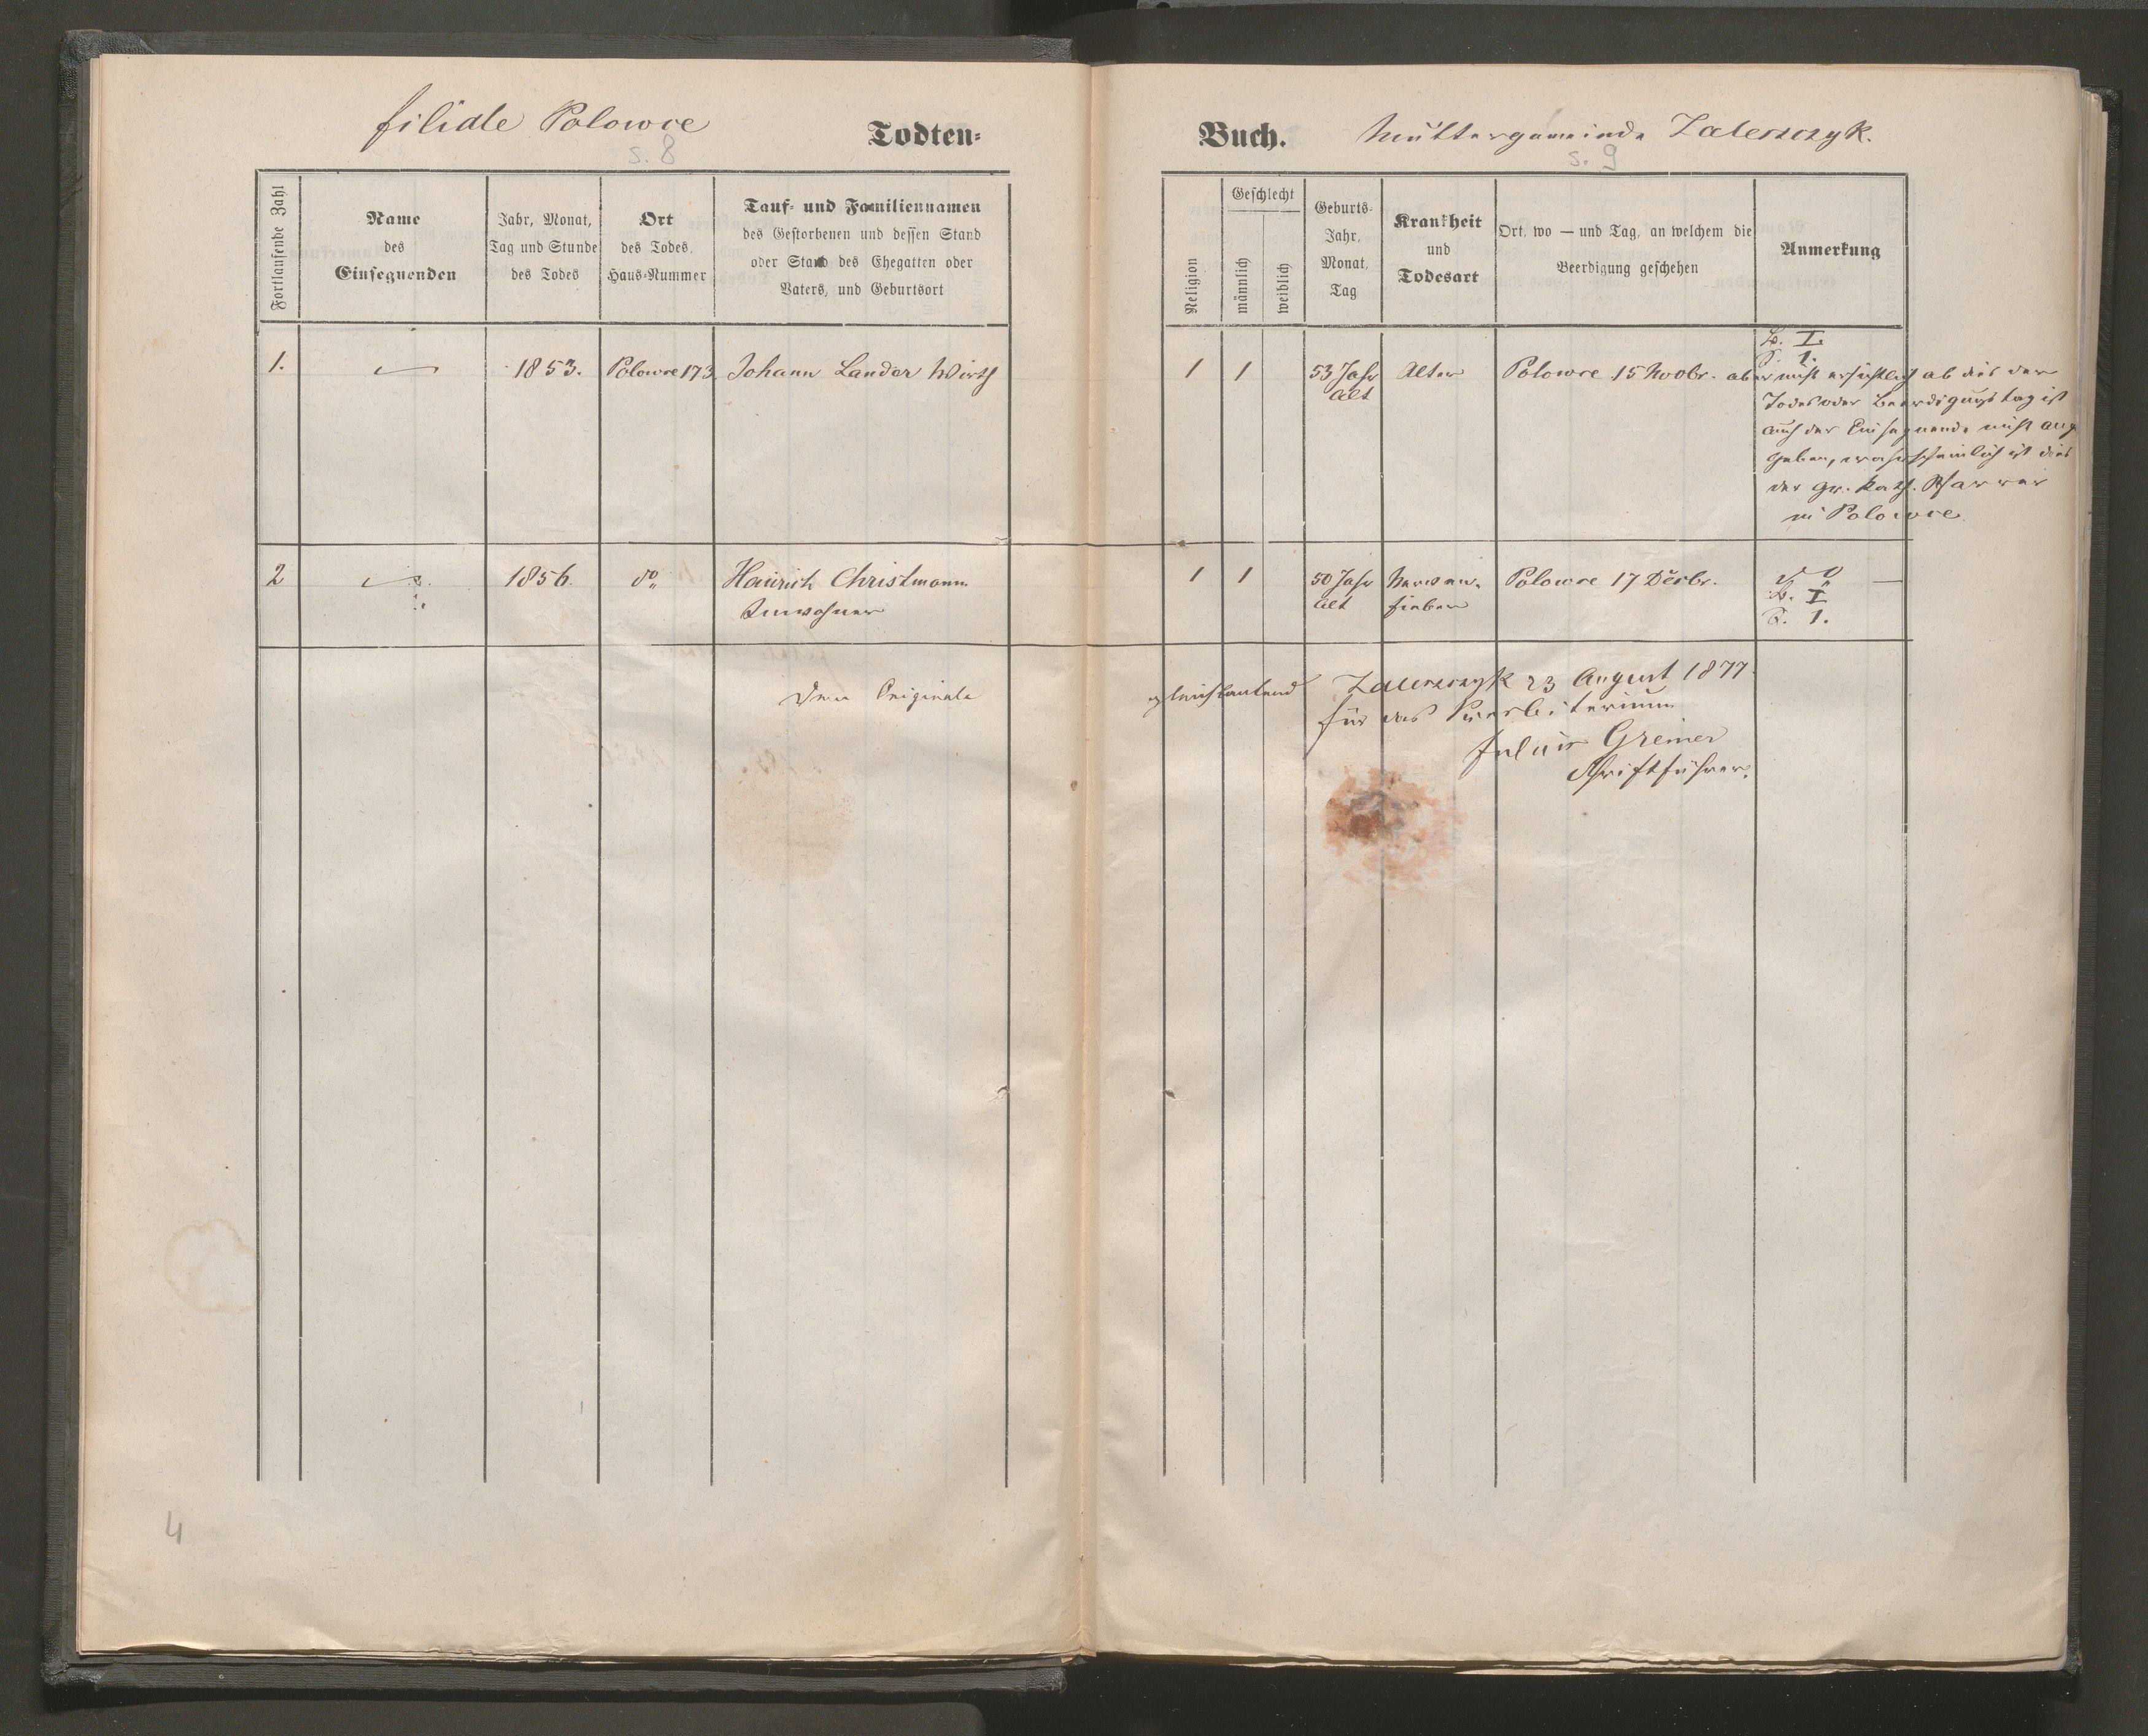 filiale Polowce
Todten-
s. 8
Fortlaufende Zahl
Name
des
Einsegnenden
Jahr, Monat,
Tag und Stunde
des Todes
Ort
des Todes,
Haus-Nummer
Tauf- und Familiennamen
des Gestorbenen und dessen Stand
oder Stand des Ehegatten oder
Vaters, und Geburtsort
1.
1853.
Polowce 173.
Johann Lander Wirth
2
1856.
do
Heinrich Christmann
Inwohner
Dem Originale
4
Buch.
Muttergemeinde Zaleszczyk.
s. 9
Religion
Geschlecht
männlich
weiblich
Geburts-
Jahr,
Monat,
Tag
Krankheit
und
Todesart
Ort, wo — und Tag, an welchem die
Beerdigung geschehen
Anmerkung
1
1
53 Jahr
alt
Alter
Polowce 15 Novbr.
B. I.
S. 1.
aber nicht ersichtlich ob dies der
Todes oder Beerdigungstag ist
auch der Einsegnende nicht ange
geben, wahrscheinlich ist dies
der gr. kath. Pfarrer
in Polowce
1
1
50 Jahr
alt
Nerven-
fieber
Polowce 17 Decbr.
do
B. I
S. 1.
gleichlautend
Zaleszczyk 23 August 1877.
für das Presbiterium
Julius Greiner
Schriftführer.